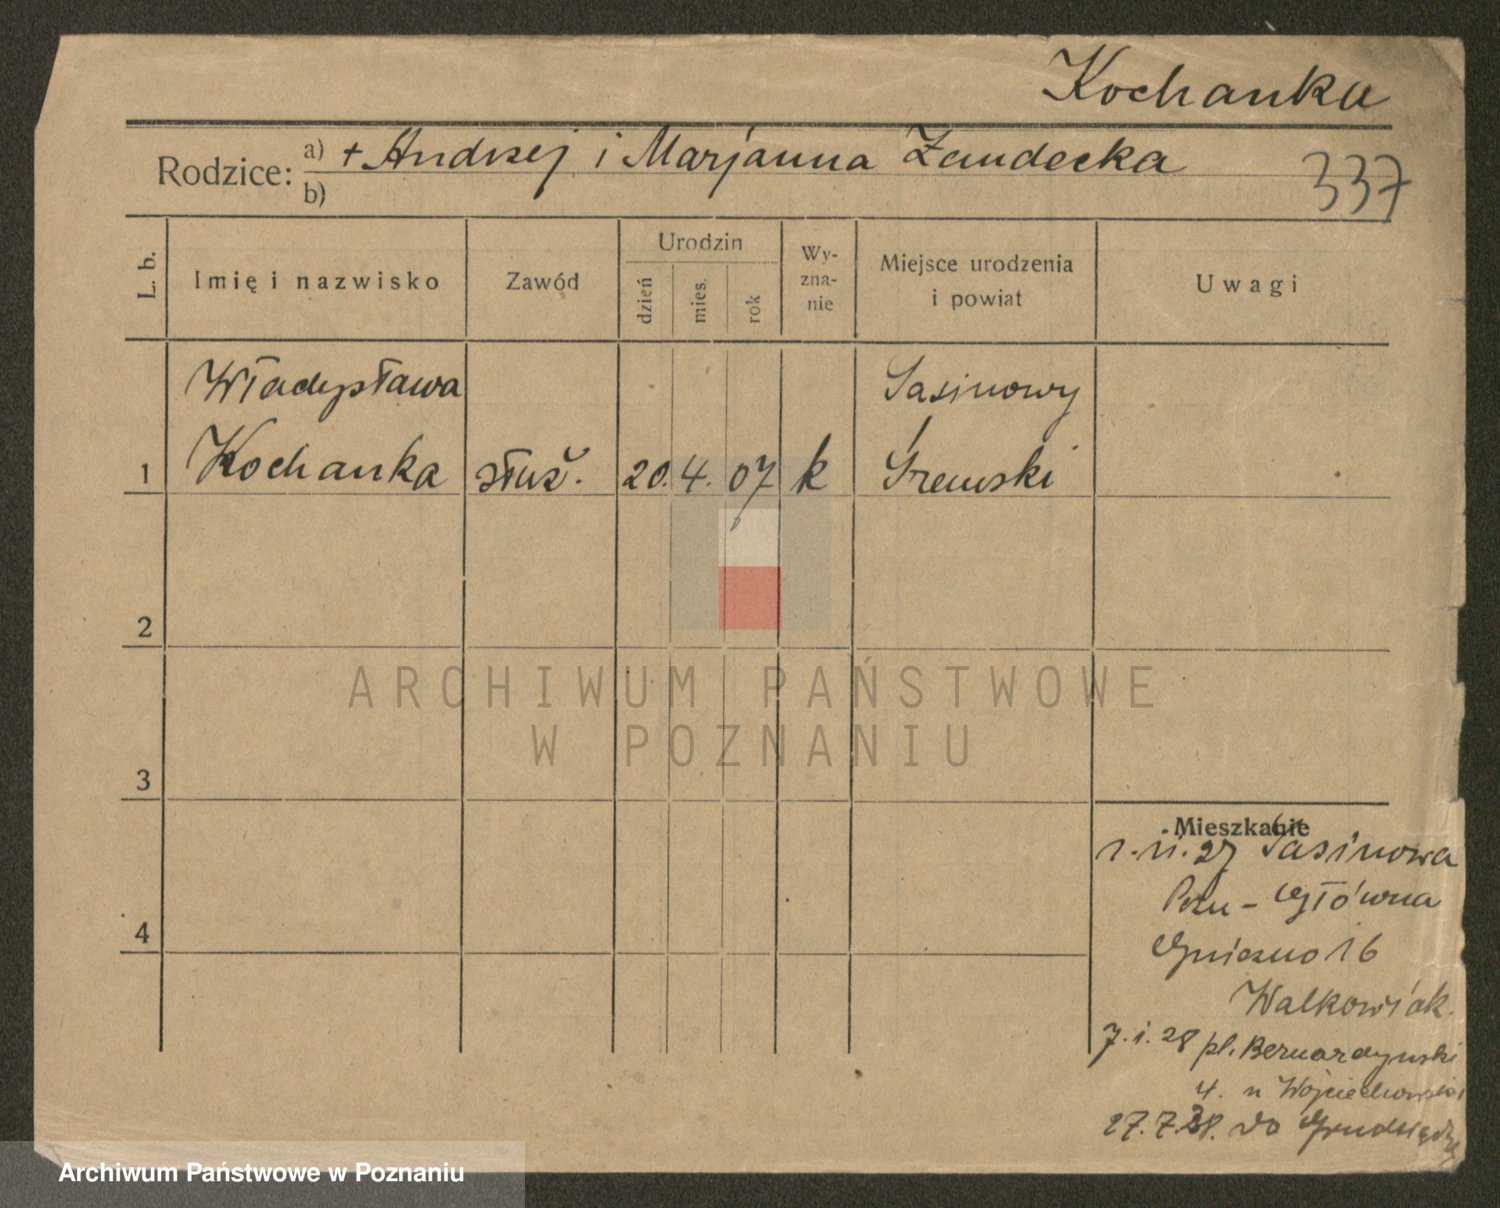 Kochanka
Rodzice: a) + Andrzej i Marjanna Zandecka
b)
337
L. b.
Imię i nazwisko
Zawód
Urodzin
dzień
mies.
rok
Wy-
zna-
nie
Miejsce urodzenia
i powiat
Uwagi
Władysława
Kochanka
służ.
20. 4. 07
k
Sasinowy
Śremski
1
2
3
4
ARCHIWUM PAŃSTWOWE
W POZNANIU
Mieszkanie
1.11.27 Sasinowa
Pozn - Główna
Gniezno 16
Walkowiak.
7.1.28 pl. Bernardyński
4. u Wojciechowski
27.7.28. do Grudziądza
Archiwum Państwowe w Poznaniu